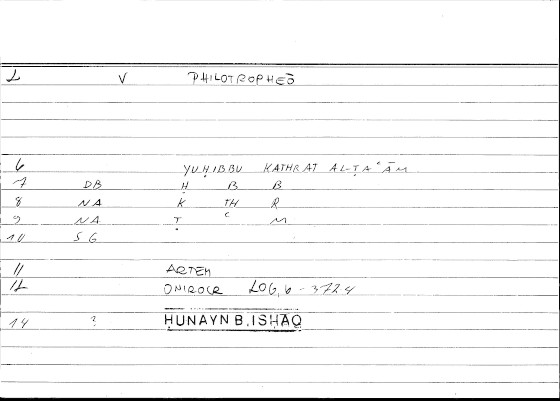 2 V PHILOTROPHEŌ
6 YUḤIBBU KATHRAT AL-ṬAʿĀM
7 DB Ḥ B B
8 NA K TH R
9 NA Ṭ ʿ M
10 SG
11 ARTEM
12 ONIROCR 206,6 - 372,4
14 ? ḤUNAYN B. ISḤĀQ